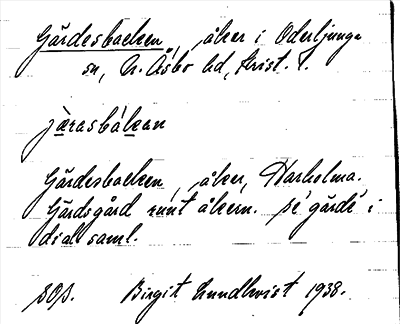 Gärdesbacken, åker i Oderljunga
sn, N. Åsbo hd, Krist. l.
jærasbákan
Gärdesbacken, åker, Harholma.
Gärdsgård runt åkern. se gärde i
dial saml.
SOS. Birgit Lundkvist 1938.